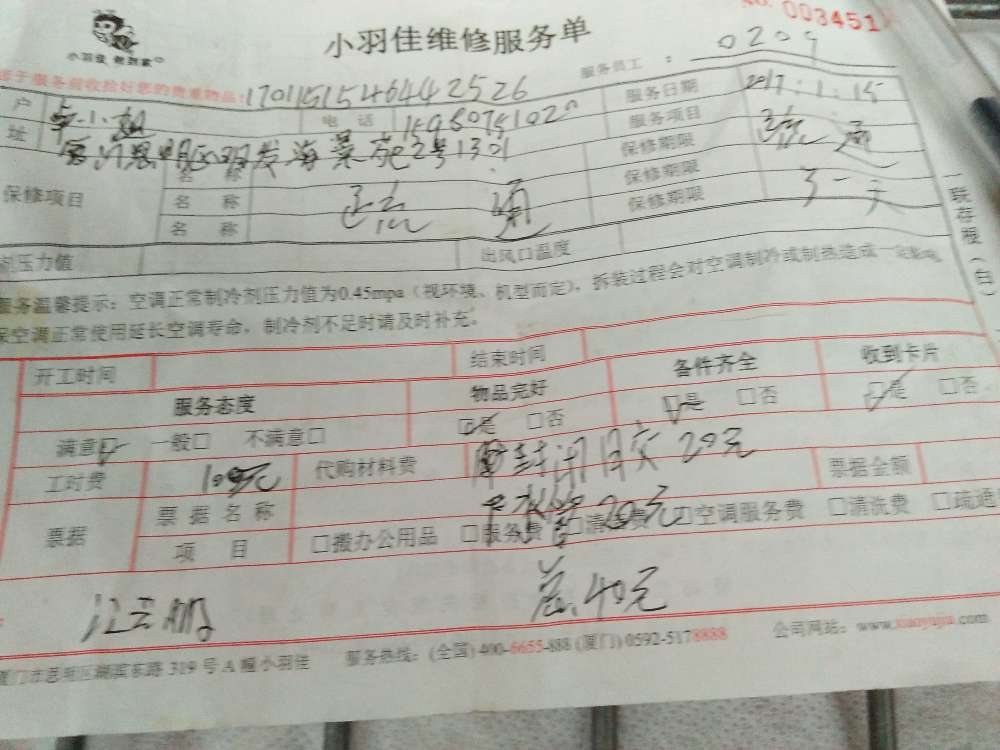 NO. 003451
小羽佳维修服务单
小羽佳 做到家
服务员工：0209
于服务前收拾好您的贵重物品：17011515464425 26
户 小姐 电话 服务日期 2017.1.15
址 明发海景苑2号1301 服务项目 疏通
保修项目 名称 保修期限
名称 疏通 保修期限 三天
名称 保修期限
剂压力值 出风口温度
服务温馨提示：空调正常制冷剂压力值为0.45mpa（视环境、机型而定），拆装过程会对空调制冷或制热造成一定影响
保空调正常使用延长空调寿命，制冷剂不足时请及时补充。
一联存根（白）
开工时间 结束时间
服务态度 物品完好 备件齐全 收到卡片
满意☑ 一般□ 不满意□ ☑是 □否 ☑是 □否 ☑是 □否
工时费 100元 代购材料费 20元 票据金额
票据 票据名称 20元
项目 □搬办公用品 □服务费 □清 费 □空调服务费 □清洗费 □疏通
总40元
厦门市思明区湖滨东路319号A幢小羽佳 服务热线：(全国) 400-6655-888 (厦门) 0592-5178888 公司网站：www.xiaoyujia.com